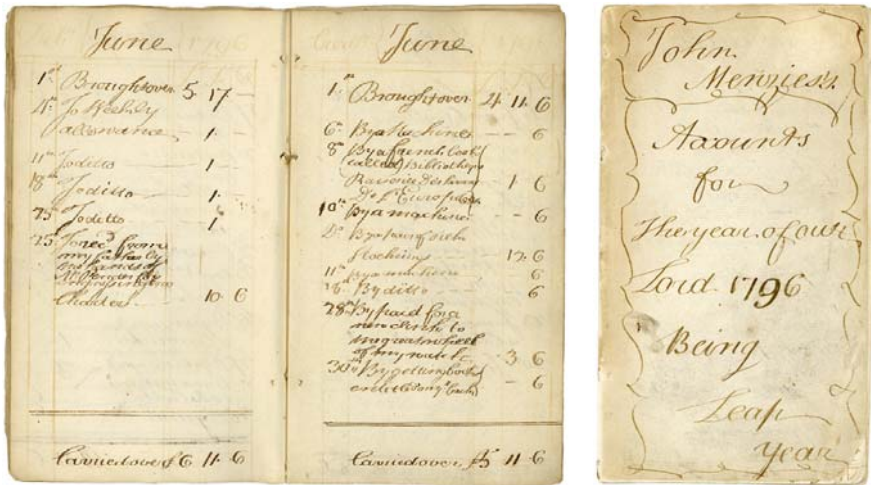 June
1st Broughtover 5 17 -
4th To Weekly
allowance - 1 -
11th To ditto - 1 -
18th To ditto - 1 -
25 To ditto 1
25 To
from
my
by
Charles 10 6
Carried over £6 11 6
June
1st Broughtover 4 11 6
6th By a Machine - - 6
8th By a french book
called Bibliotheque
- 1 6
10th By a machine - - 6
Do By a pair of silk
Stockings 12 6
11th By a machine 6
18th By ditto 6
28th By paid for a
new to
wheel
of my watch - 3 6
30th By getting
- 6
Carried over £5 11 6
John
Menzies's
Accounts
for
The year of our
Lord 1796
Being
Leap
Year